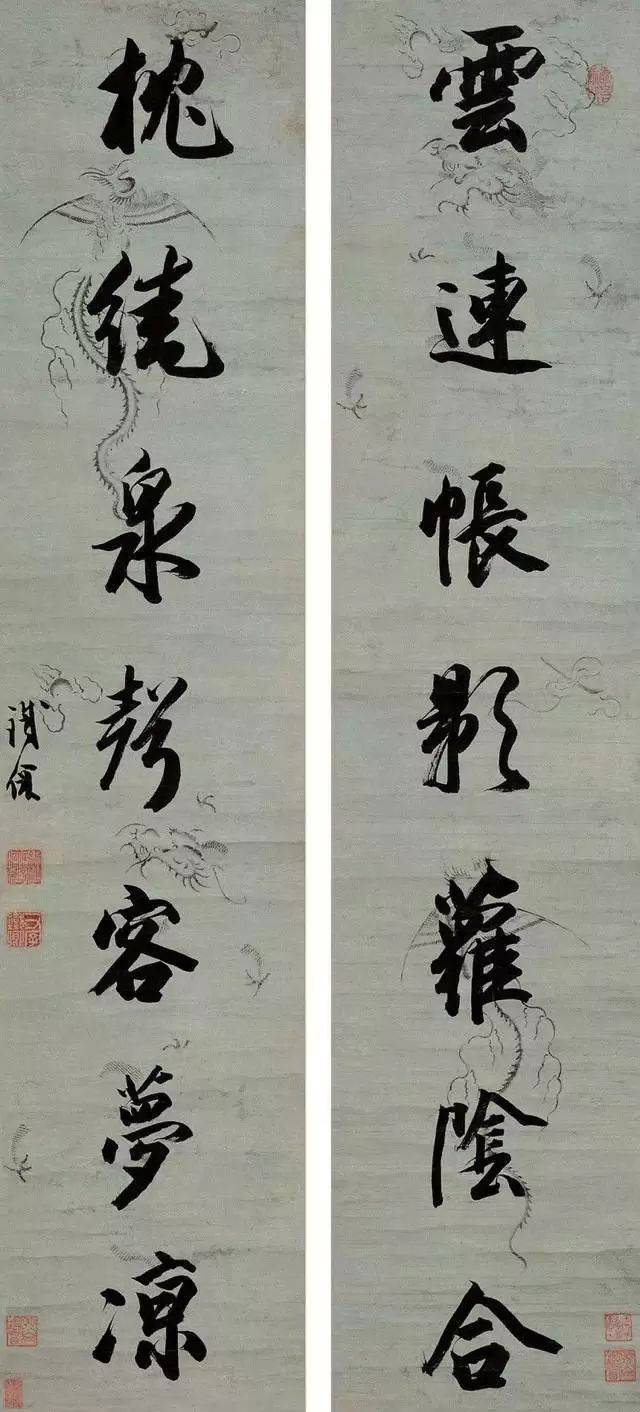 雲連帳影蘿陰合
枕繞泉聲客夢凉